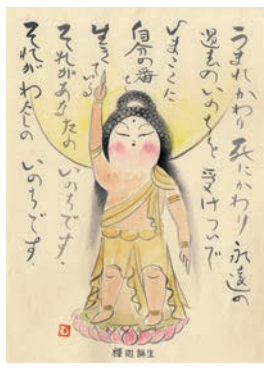 うまれかわり 死にかわり 永遠の
過去のいのちを 受けついで
いまここに
自分の番を
生きている
それがあなたの いのちです。
それがわたしの いのちです。
釋迦誕生